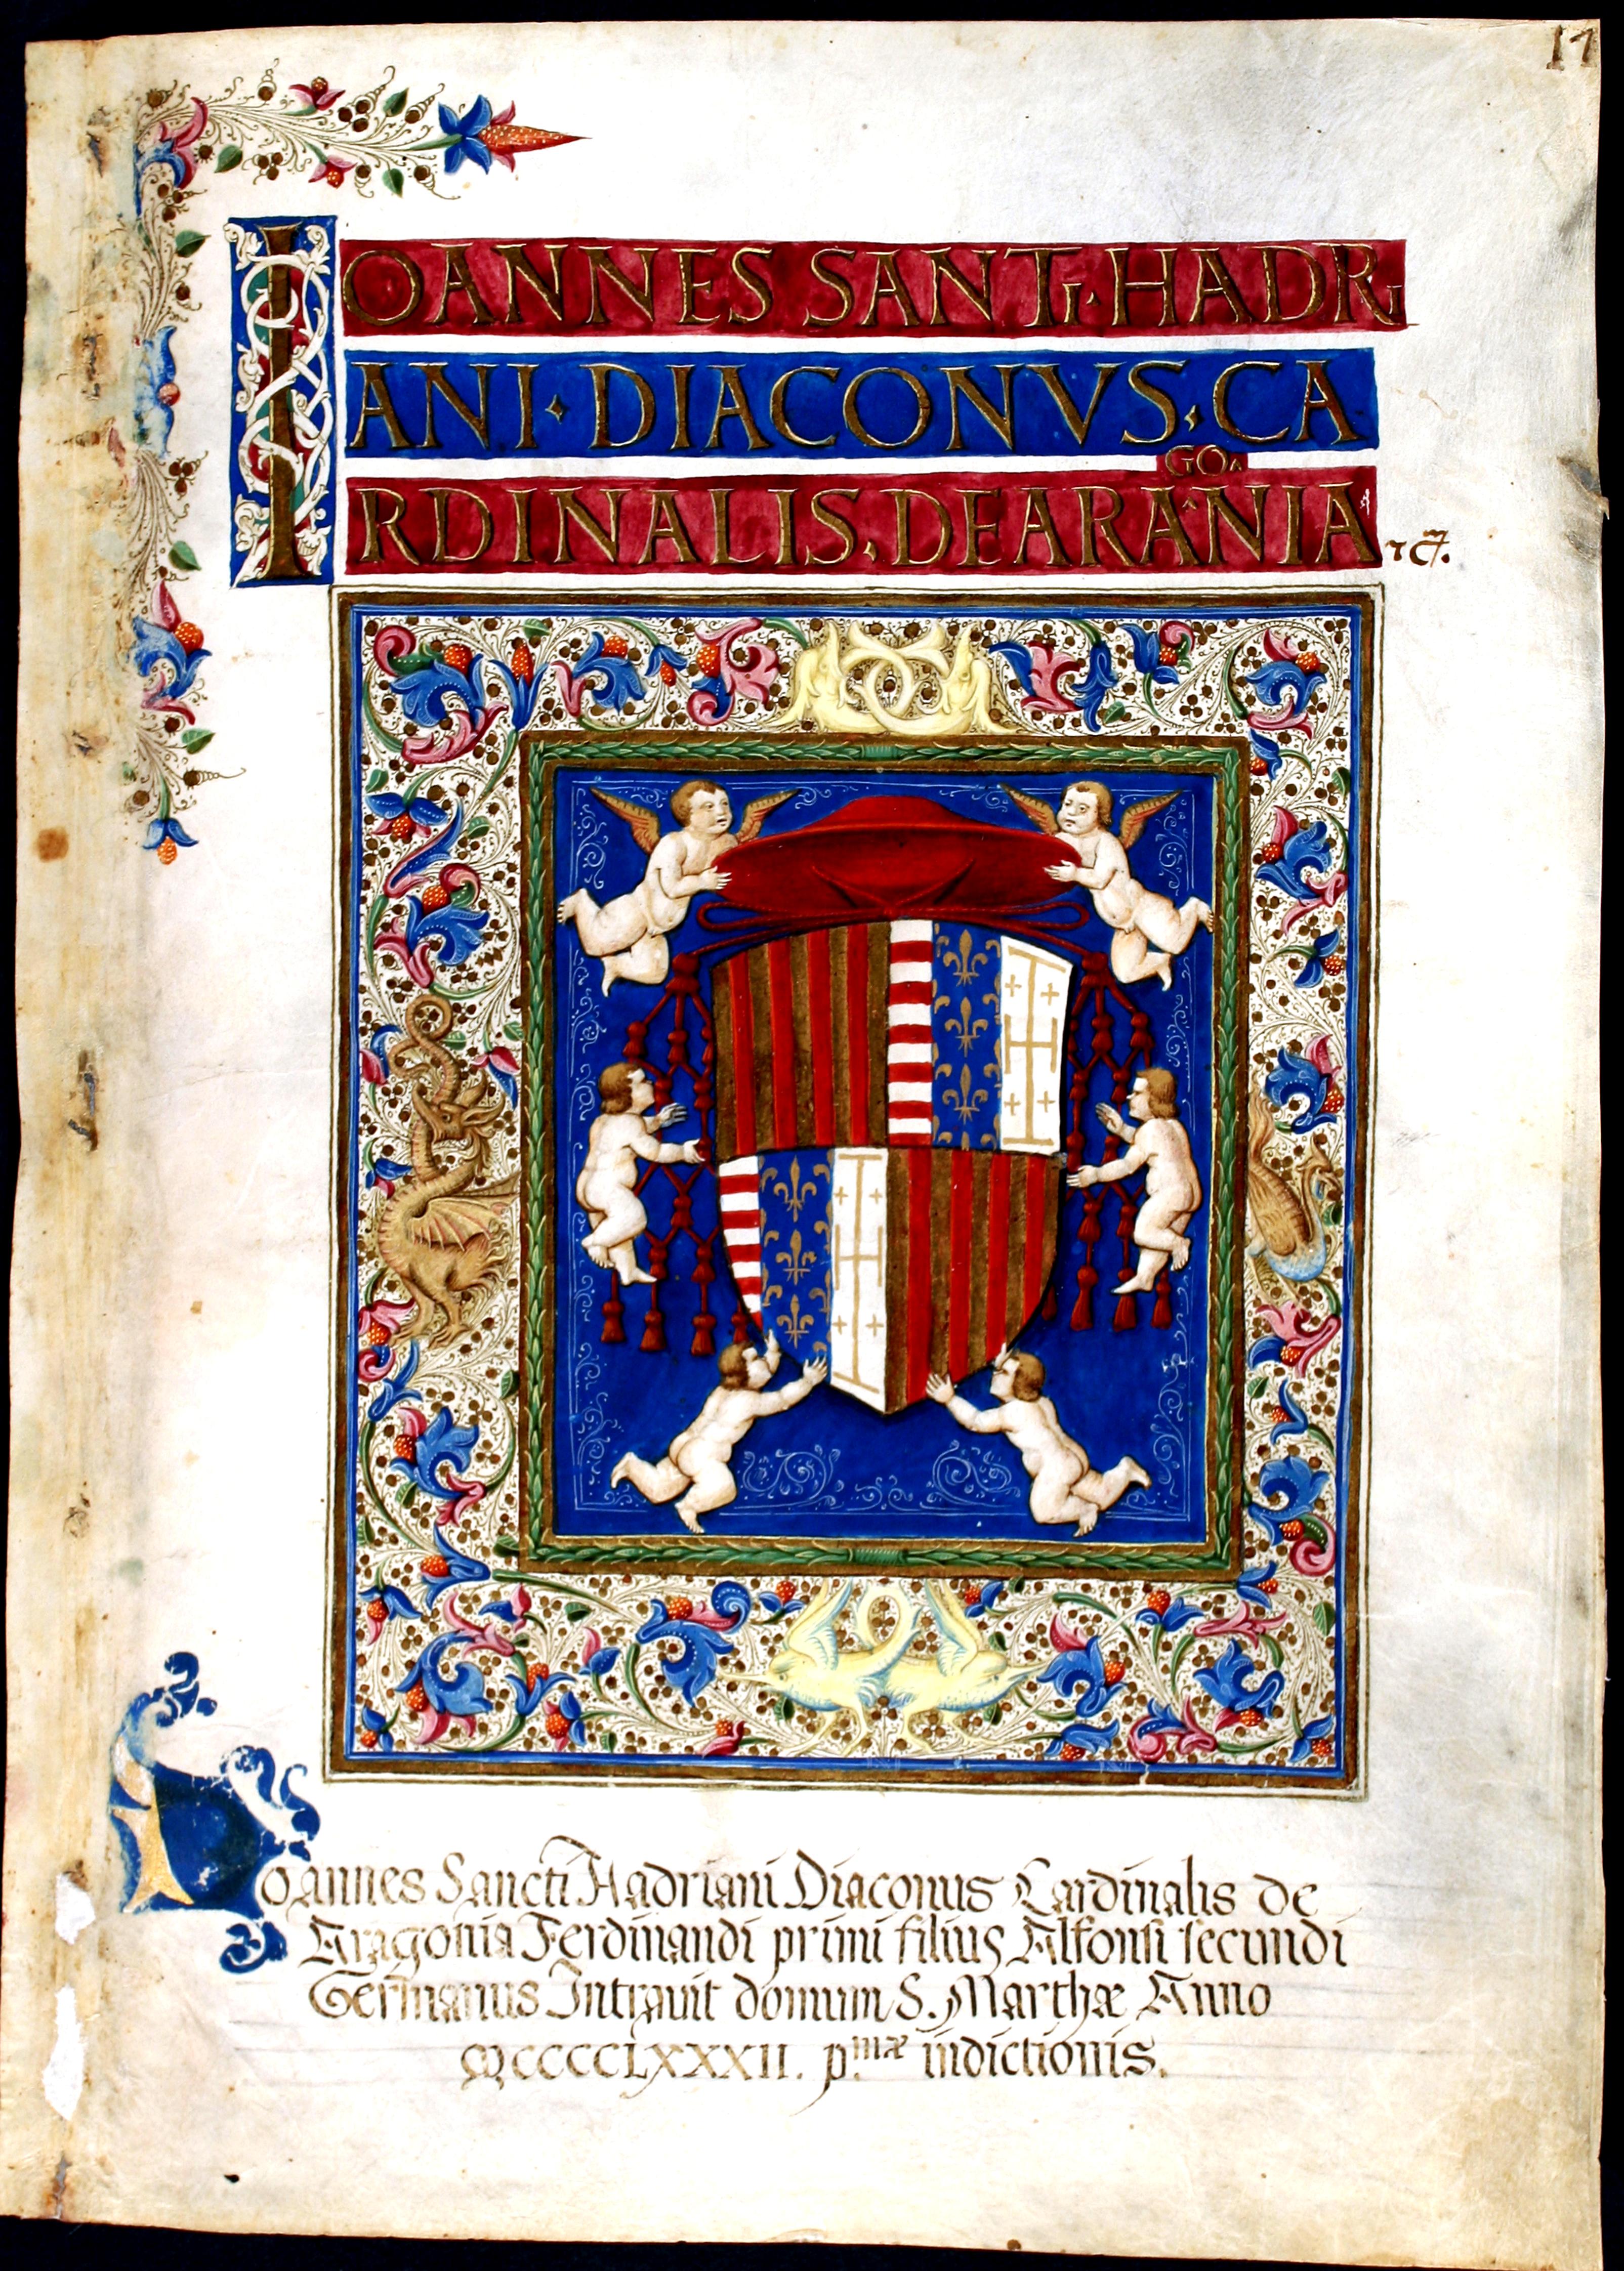 17
IOANNES SANTI · HADRI
ANI · DIACONVS · CA
GO
RDINALIS · DE ARANIA ⁊ cꝫ.
Ioannes Sancti Hadriani Diaconus Cardinalis de
Aragonia Ferdinandi primi filius Alfonsi secundi
Germanus Intrauit domum S. Marthæ Anno
MCCCCLXXXII. p.mæ indictionis.